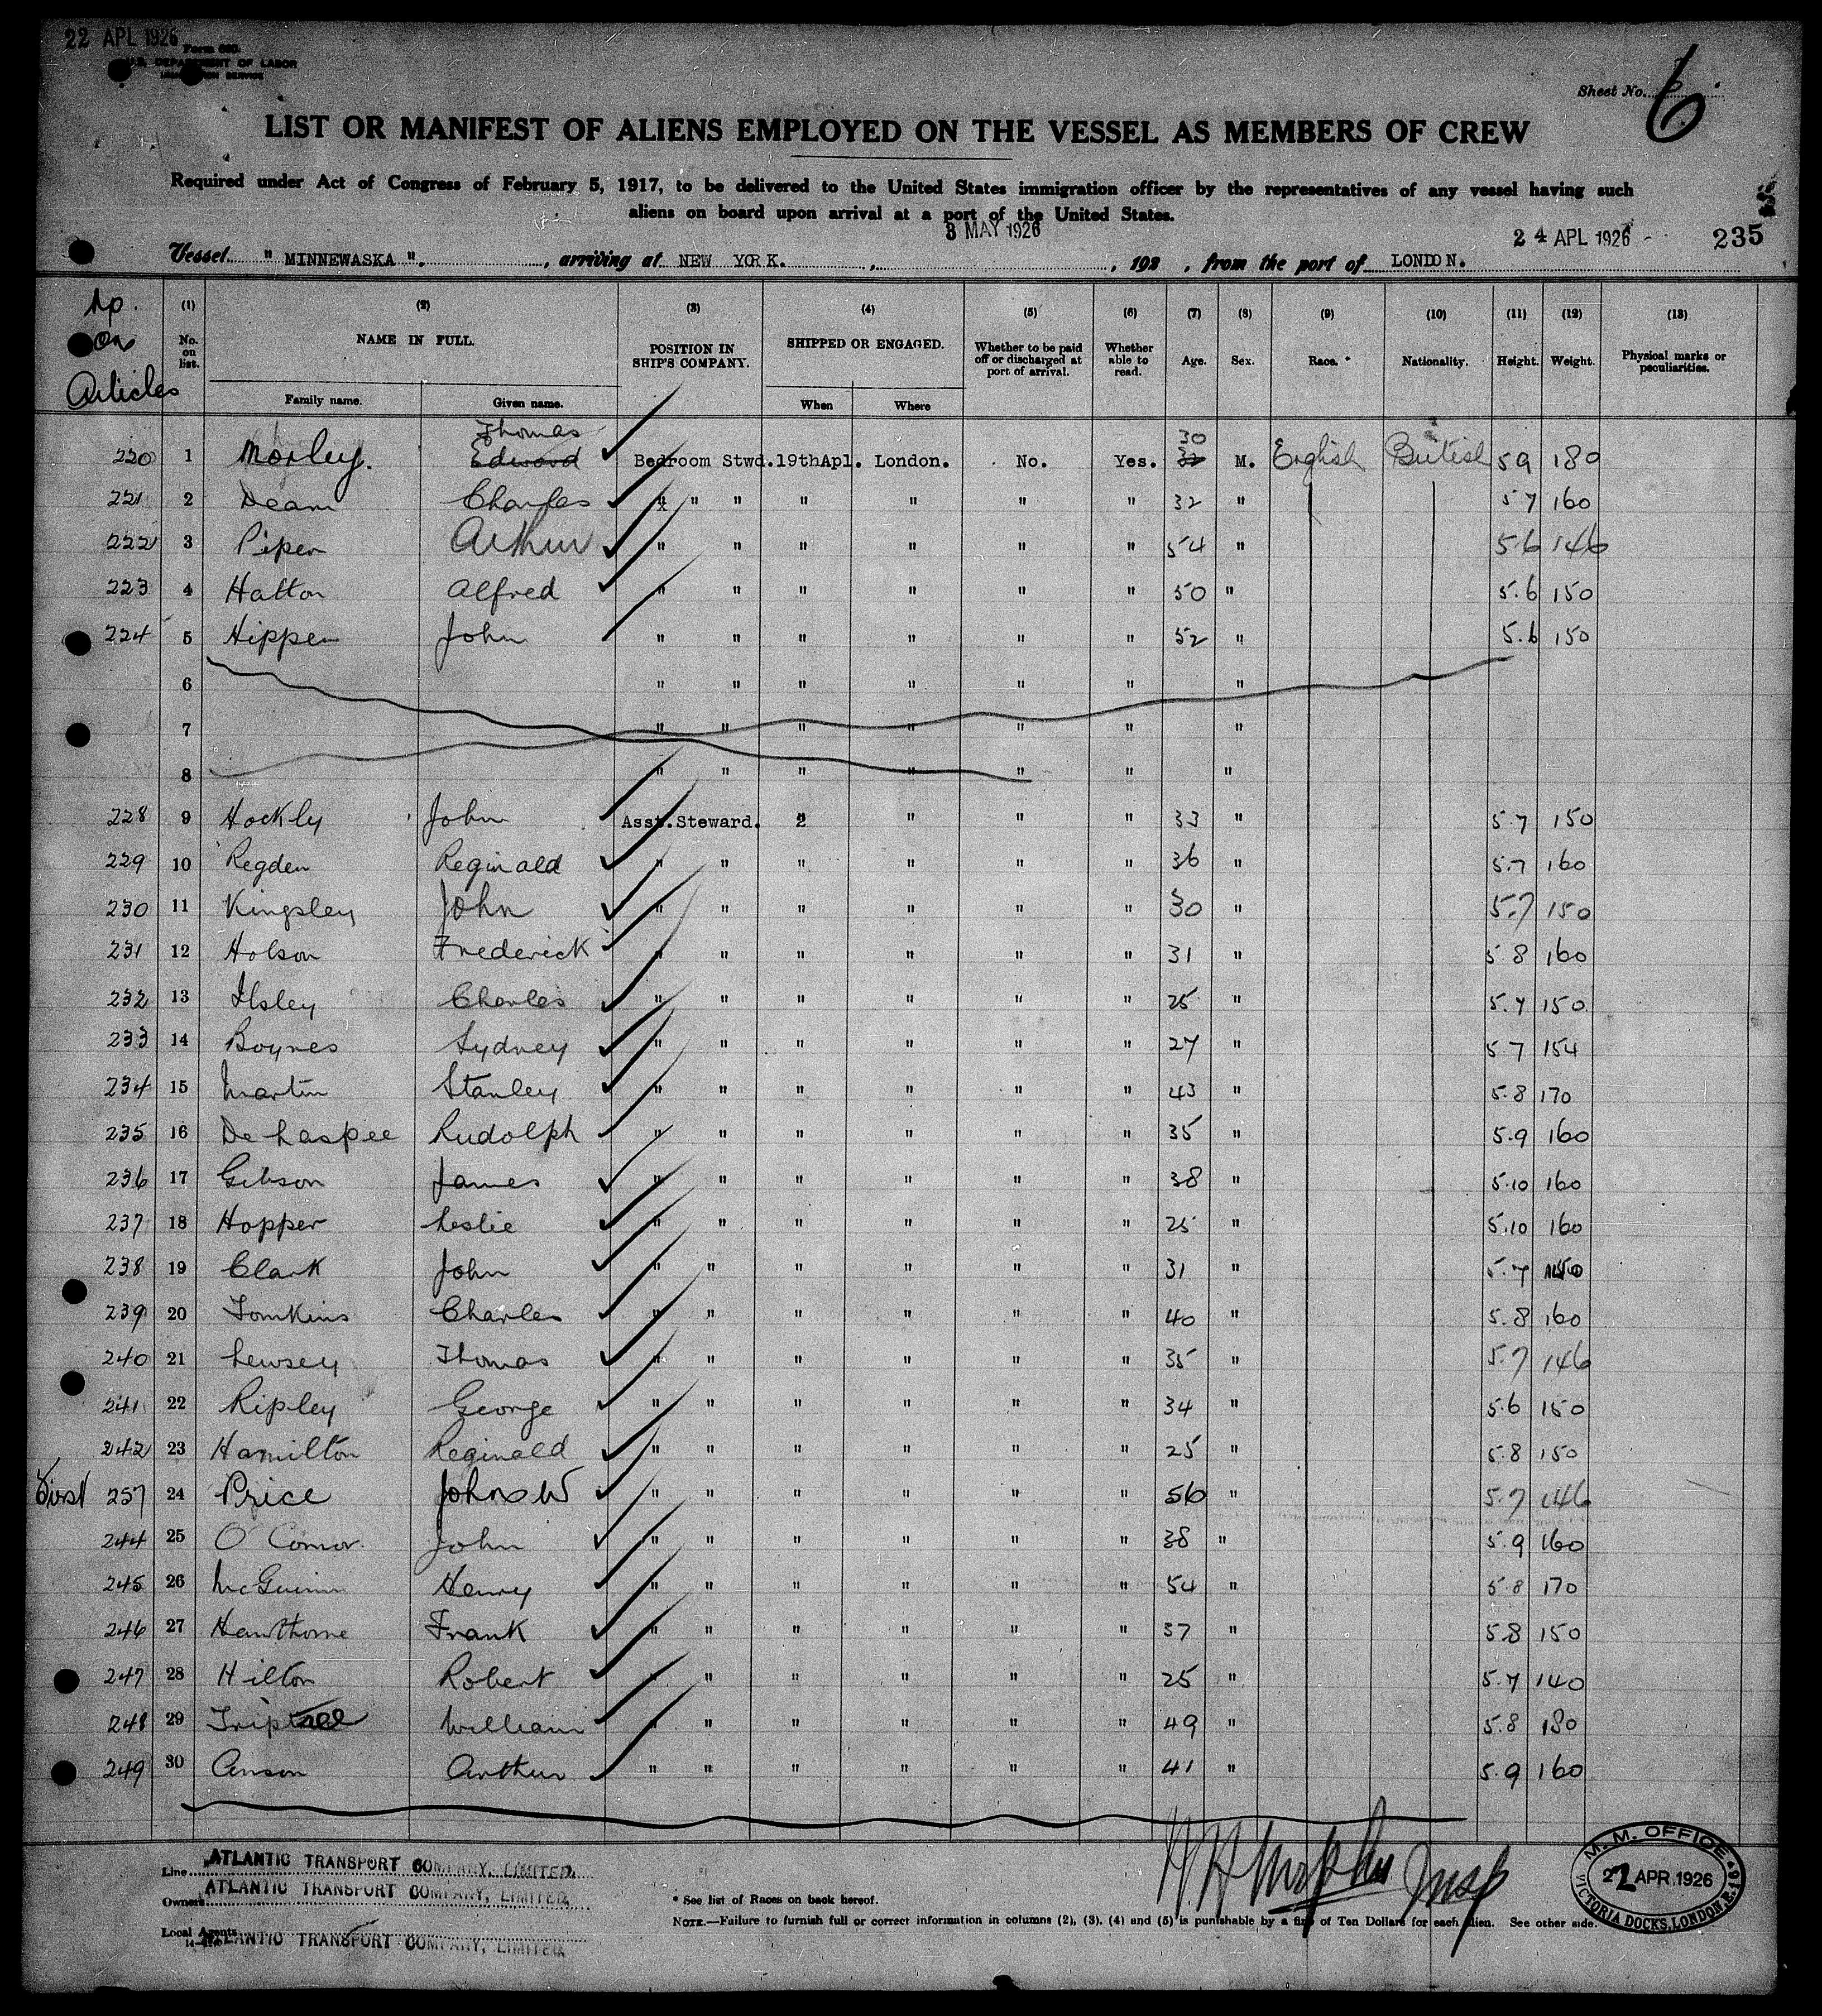 22 APL 1926
Form 680.
U.S. DEPARTMENT OF LABOR
IMMIGRATION SERVICE
Sheet No. 6
LIST OR MANIFEST OF ALIENS EMPLOYED ON THE VESSEL AS MEMBERS OF CREW
Required under Act of Congress of February 5, 1917, to be delivered to the United States immigration officer by the representatives of any vessel having such
aliens on board upon arrival at a port of the United States.
3 MAY 1926
24 APL 1926 235
Vessel " MINNEWASKA ". , arriving at NEW YORK. , , 192 , from the port of LONDON.
No. on Articles
(1) (2) (3) (4) (5) (6) (7) (8) (9) (10) (11) (12) (13)
No. on list. NAME IN FULL. POSITION IN SHIP'S COMPANY. SHIPPED OR ENGAGED. Whether to be paid off or discharged at port of arrival. Whether able to read. Age. Sex. Race. * Nationality. Height. Weight. Physical marks or peculiarities.
Family name. Given name. When Where
Thomas 30
220 1 Morley. Edward Bedroom Stwd. 19thApl. London. No. Yes. 32 M. English British 5 9 180
221 2 Dean Charles " " " " " " " 32 " 5 7 160
222 3 Piper Arthur " " " " " " 54 " 5.6 146
223 4 Hatton Alfred " " " " " " 50 " 5.6 150
224 5 Hippen John " " " " " " 52 " 5.6 150
6 " " " " " " "
7 " " " " " " "
8 " " " " " " "
228 9 Hockly John Asst.Steward. 2 " " " 33 " 5 7 150
229 10 Regden Reginald " " " " " " 36 " 5.7 160
230 11 Kingsley John " " " " " " 30 " 5.7 150
231 12 Holson Frederick " " " " " " 31 " 5 8 160
232 13 Ilsley Charles " " " " " " 25 " 5.7 150
233 14 Boynes Sydney " " " " " " 27 " 5 7 154
234 15 Martin Stanley " " " " " " 43 " 5.8 170
235 16 De Laspee Rudolph " " " " " " 35 " 5.9 160
236 17 Gibson James " " " " " " 38 " 5.10 160
237 18 Hopper Leslie " " " " " " 25 " 5.10 160
238 19 Clark John " " " " " " 31 " 5.7 150
239 20 Tomkins Charles " " " " " " 40 " 5.8 160
240 21 Lewsey Thomas " " " " " " 35 " 5.7 146
241 22 Ripley George " " " " " " 34 " 5.6 150
242 23 Hamilton Reginald " " " " " " 25 " 5.8 150
First 257 24 Price John W " " " " " " 56 " 5.7 146
244 25 O'Connor John " " " " " " 38 " 5.9 160
245 26 McGuinn Henry " " " " " " 54 " 5 8 170
246 27 Hawthorne Frank " " " " " " 37 " 5.8 150
247 28 Hilton Robert " " " " " " 25 " 5.7 140
248 29 Triptree William " " " " " " 49 " 5.8 180
249 30 Anson Arthur " " " " " " 41 " 5.9 160
Line ATLANTIC TRANSPORT COMPANY, LIMITED.
Owners ATLANTIC TRANSPORT COMPANY, LIMITED.
Local Agents ATLANTIC TRANSPORT COMPANY, LIMITED.
* See list of Races on back hereof.
NOTE.—Failure to furnish full or correct information in columns (2), (3), (4) and (5) is punishable by a fine of Ten Dollars for each alien. See other side.
Insp
M. M. OFFICE
22 APR.1926
VICTORIA DOCKS, LONDON, E.16